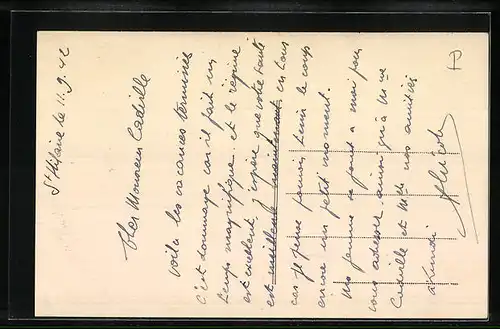 St Hilaire le 11.9.42
Cher Monsieur Cadville
Voilà les vacances terminées
c'est dommage car il fait un
temps magnifique et le régime
est excellent, j'espère que votre santé
est meilleure maintenant en tous
cas je pense pouvoir tenir le coup
encore un petit moment.
Ma femme se joint à moi pour
vous adresser ainsi qu'à Mme
Cadville et Mlle nos amitiés